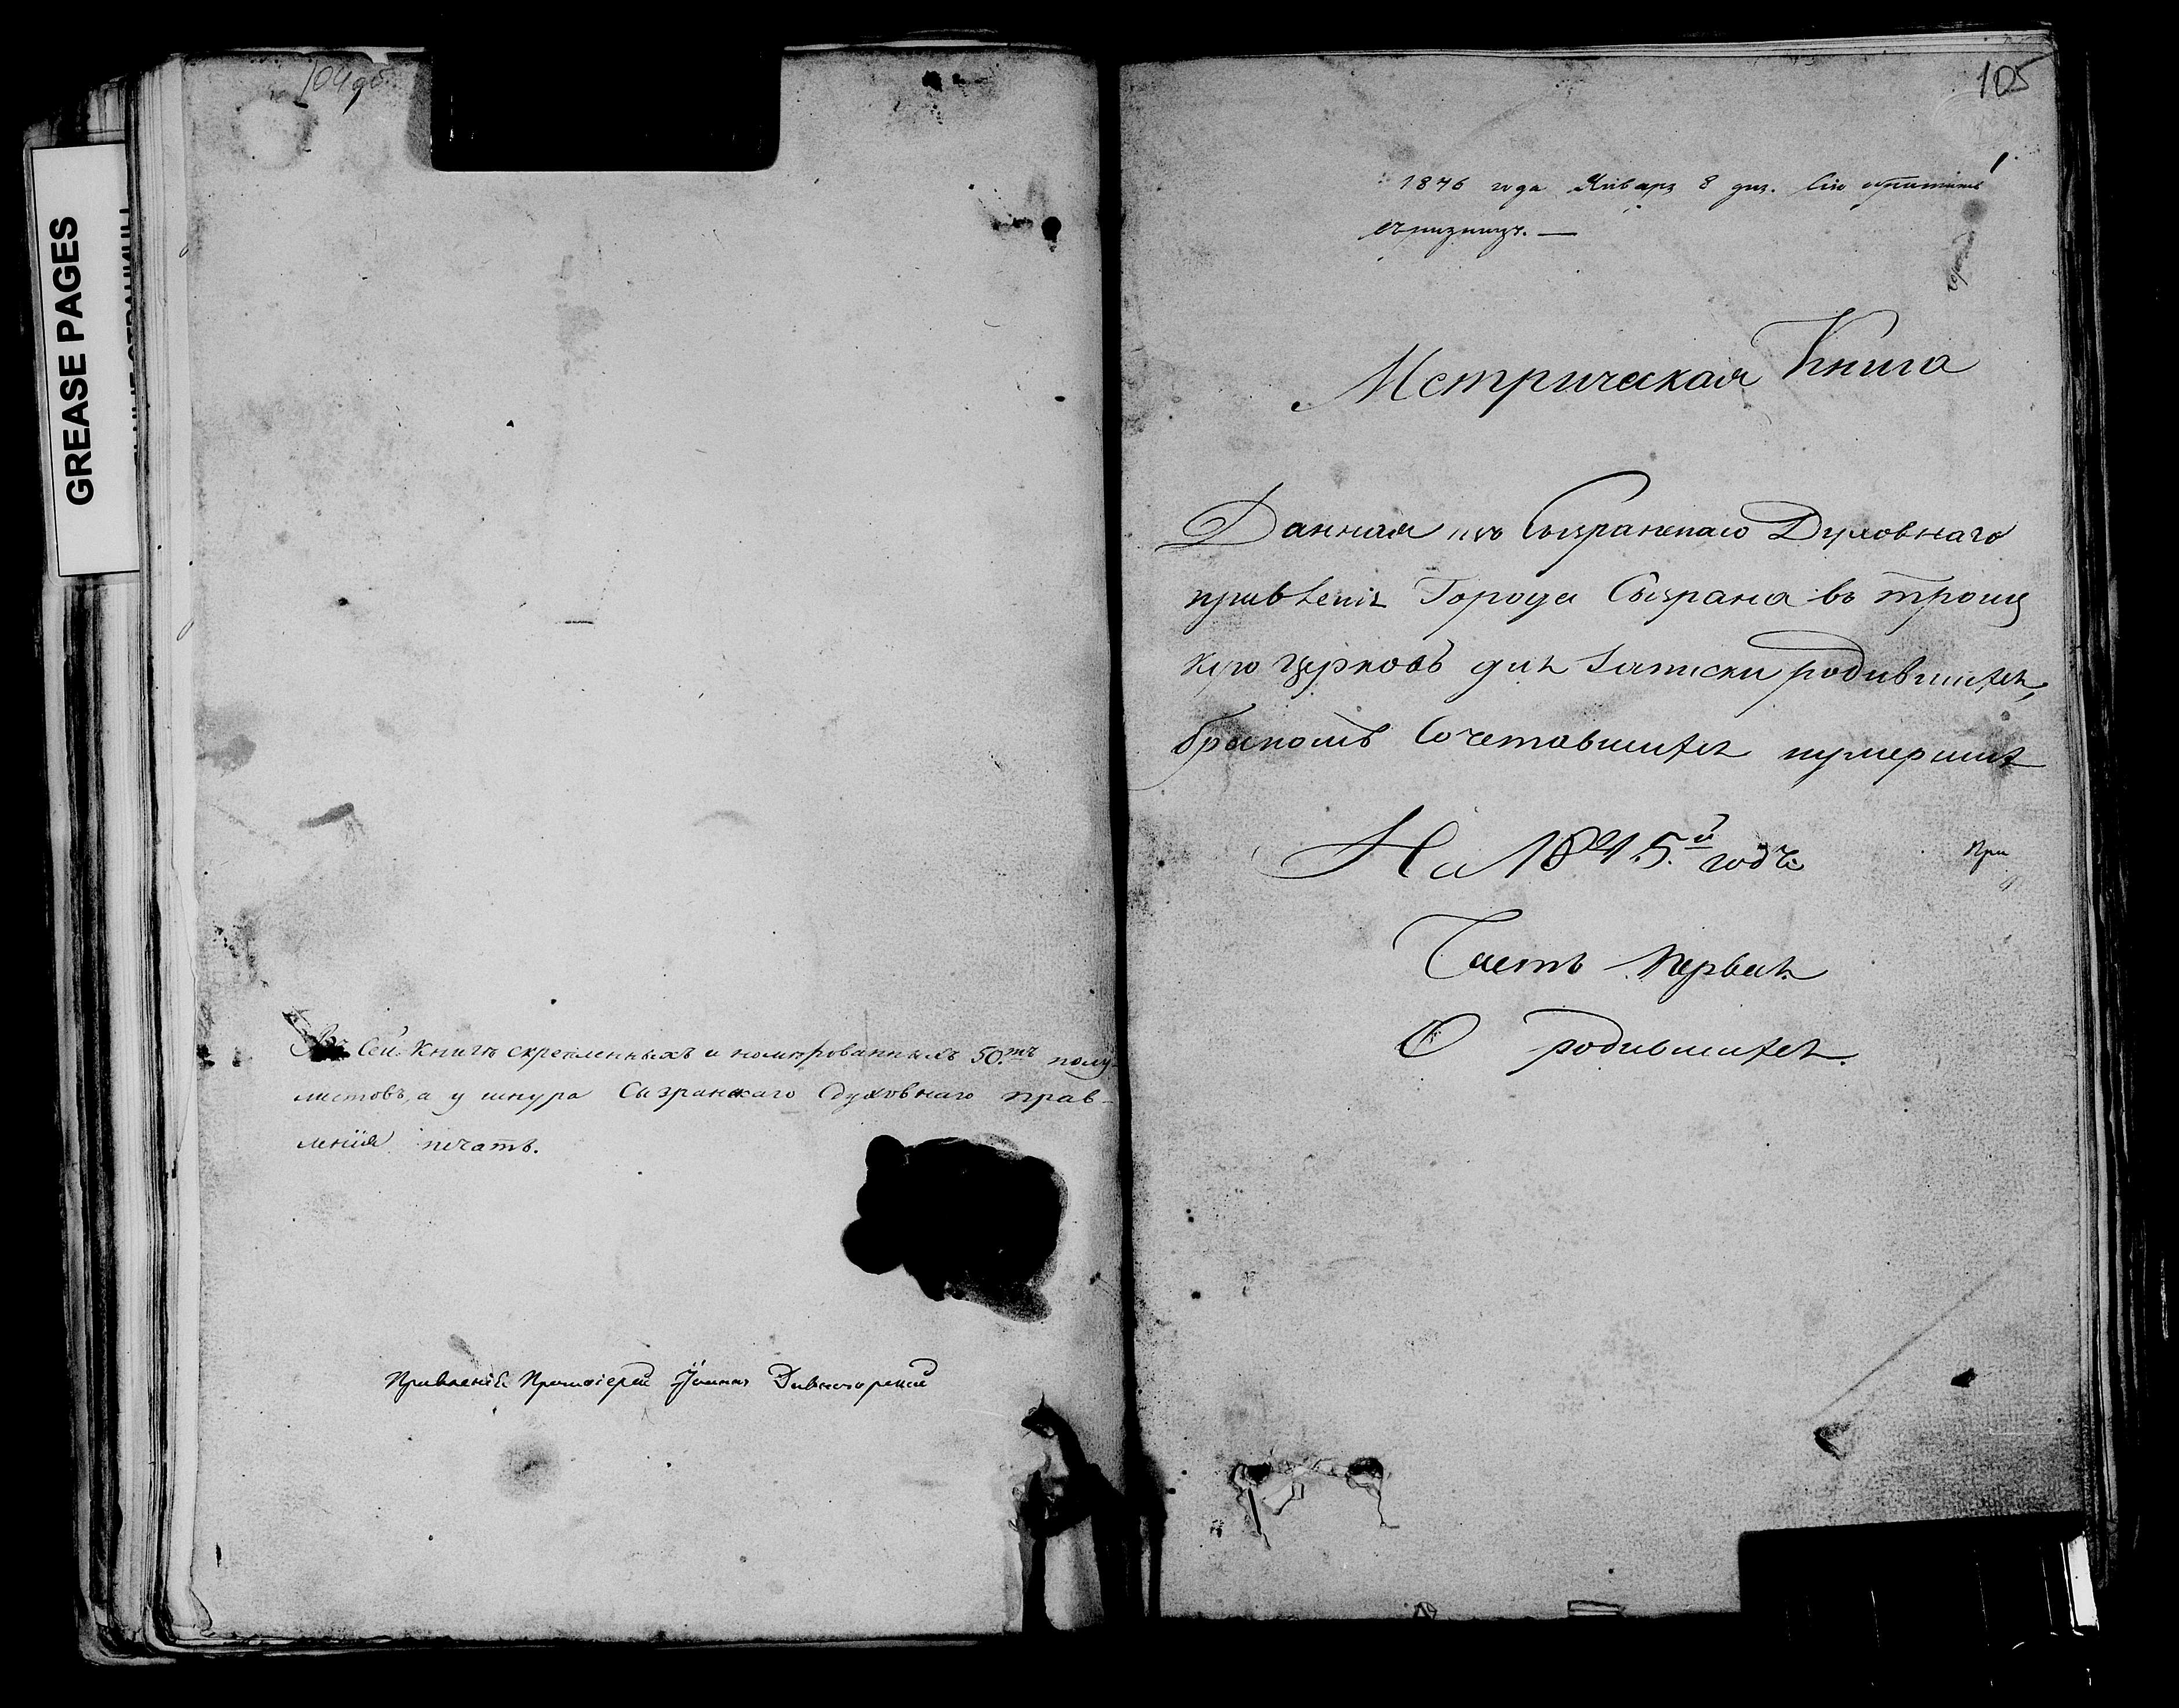 104об.
GREASE PAGES
Въ сей книгѣ скрепленныхъ и номѣрованныхъ 50.тъ полу-
листовъ, а у шнура Сызранскаго Духовнаго прав-
ленія печать.
Правленія Протоіерей Іоаннъ Дивногорскій
105
1
1846 года Января 8 дня. Сію
Метрическая Книга
Данная изъ Сызранскаго Духовнаго
правленія Города Сызрана въ троиц
кую церковь для записки родившихся,
бракомъ сочетавшихся иумершихъ
На 1845.й годъ
Часть Первая.
О родившихся.
При